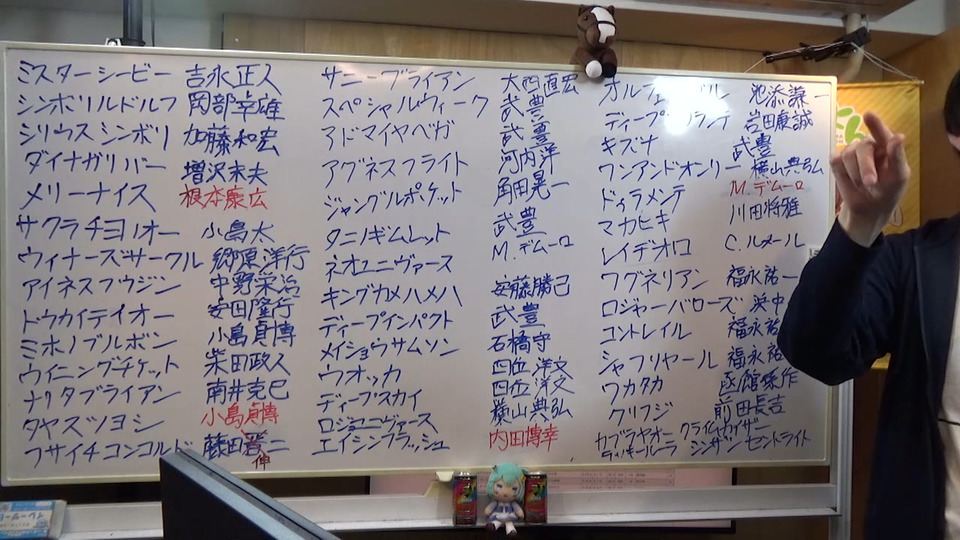 ミスターシービー 吉永正人
シンボリルドルフ 岡部幸雄
シリウスシンボリ 加藤和宏
ダイナガリバー 増沢末夫
メリーナイス 根本康広
サクラチヨノオー 小島太
ウィナーズサークル 郷原洋行
アイネスフウジン 中野栄治
トウカイテイオー 安田隆行
ミホノブルボン 小島貞博
ウイニングチケット 柴田政人
ナリタブライアン 南井克巳
タヤスツヨシ 小島貞博
フサイチコンコルド 藤田
伸
二
サニーブライアン 大西直宏
スペシャルウィーク 武豊
アドマイヤベガ 武豊
アグネスフライト 河内洋
ジャングルポケット 角田晃一
タニノギムレット 武豊
ネオユニヴァース M.デムーロ
キングカメハメハ 安藤勝己
ディープインパクト 武豊
メイショウサムソン 石橋守
ウオッカ 四位洋文
ディープスカイ 四位洋文
ロジユニヴァース 横山典弘
エイシンフラッシュ 内田博幸
オルフェ ル 池添謙一
ディープ ランテ 岩田康誠
キズナ 武豊
ワンアンドオンリー 横山典弘
ドゥラメンテ M.デムーロ
マカヒキ 川田将雅
レイデオロ C.ルメール
ワグネリアン 福永祐一
ロジャーバローズ 浜中
コントレイル 福永祐
シャフリヤール 福永祐
ワカタカ 函館孫作
クリフジ 前田長吉
カブラヤオー クライムカイザー
シンザン セントライト